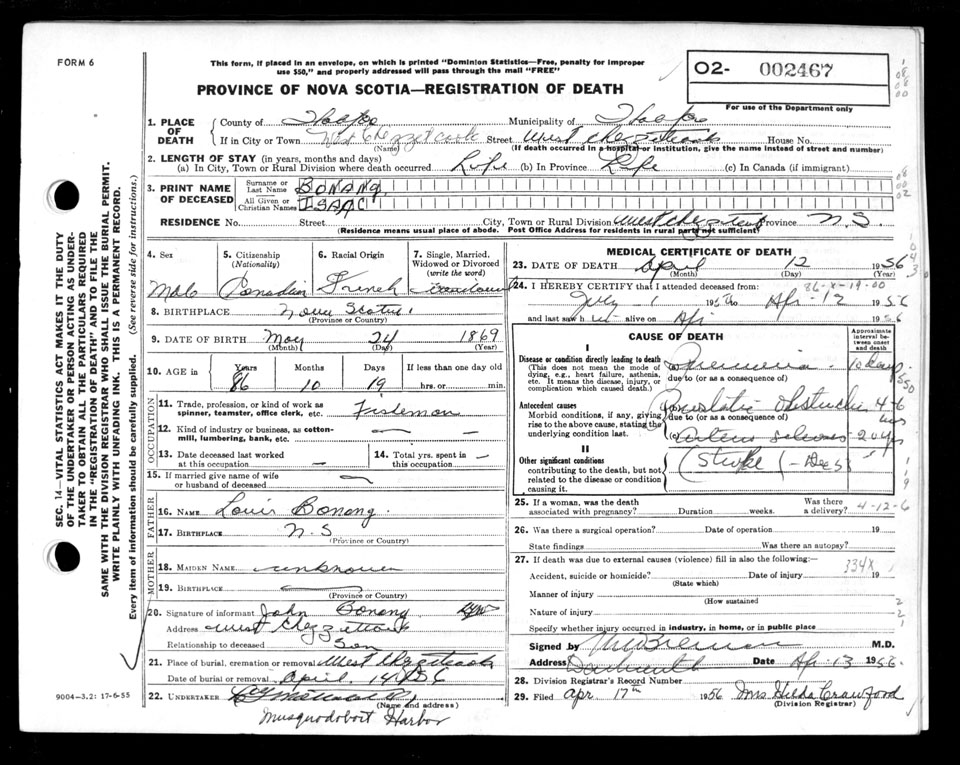 FORM 6
This form, if placed in an envelope, on which is printed "Dominion Statistics—Free, penalty for improper
use $50," and properly addressed will pass through the mail "FREE"
O2- 002467
For use of the Department only
PROVINCE OF NOVA SCOTIA—REGISTRATION OF DEATH
1. PLACE OF DEATH
County of Municipality of
If in City or Town West Chezzetcook Street West Chezzetcook House No.
(Name) (If death occurred in a hospital or institution, give the name instead of street and number)
2. LENGTH OF STAY (in years, months and days)
(a) In City, Town or Rural Division where death occurred Life (b) In Province Life (c) In Canada (if immigrant)
3. PRINT NAME OF DECEASED
Surname or Last Name BONANG
All Given or Christian Names ISAAC
RESIDENCE No. Street City, Town or Rural Division Province N.S.
(Residence means usual place of abode. Post Office Address for residents in rural parts not sufficient)
4. Sex
Male
5. Citizenship
(Nationality)
Canadian
6. Racial Origin
French
7. Single, Married, Widowed or Divorced
(write the word)
8. BIRTHPLACE Nova Scotia
(Province or Country)
9. DATE OF BIRTH May 24 1869
(Month) (Day) (Year)
10. AGE in Years Months Days If less than one day old
86 10 19 hrs. or min.
OCCUPATION
11. Trade, profession, or kind of work as
spinner, teamster, office clerk, etc. Fisherman
12. Kind of industry or business, as cotton-
mill, lumbering, bank, etc. —
13. Date deceased last worked
at this occupation —
14. Total yrs. spent in
this occupation —
15. If married give name of wife
or husband of deceased
FATHER
16. NAME Louis Bonang
17. BIRTHPLACE N.S
(Province or Country)
MOTHER
18. MAIDEN NAME unknown
19. BIRTHPLACE —
(Province or Country)
20. Signature of informant John Bonang
Address West Chezzetcook
Relationship to deceased Son
21. Place of burial, cremation or removal West Chezzetcook
Date of burial or removal April 14 1956
22. UNDERTAKER
(Name and address)
Musquodoboit Harbor
9004—3.2: 17-6-55
SEC. 14—VITAL STATISTICS ACT MAKES IT THE DUTY
OF THE UNDERTAKER OR PERSON ACTING AS UNDER-
TAKER TO OBTAIN ALL THE PARTICULARS REQUIRED
IN THE "REGISTRATION OF DEATH" AND TO FILE THE
SAME WITH THE DIVISION REGISTRAR WHO SHALL ISSUE THE BURIAL PERMIT.
WRITE PLAINLY WITH UNFADING INK. THIS IS A PERMANENT RECORD.
Every item of information should be carefully supplied. (See reverse side for instructions.)
MEDICAL CERTIFICATE OF DEATH
23. DATE OF DEATH April 12 1956
(Month) (Day) (Year)
86-X-19-00
24. I HEREBY CERTIFY that I attended deceased from:
July 1 to Apr 12 1956
and last saw h alive on Apr 1956
CAUSE OF DEATH
Approximate interval between onset and death
I
Disease or condition directly leading to death
(This does not mean the mode of dying, e.g., heart failure, asthenia, etc. It means the disease, injury, or complication which caused death.)
Pneumonia 10 days
due to (or as a consequence of)
Antecedent causes
Morbid conditions, if any, giving rise to the above cause, stating the underlying condition last.
Prostatic obstruction 4-6
due to (or as a consequence of)
20 yrs
II
Other significant conditions
contributing to the death, but not related to the disease or condition causing it.
(Stroke
25. If a woman, was the death
associated with pregnancy? Duration weeks. Was there a delivery?
4-12-6
26. Was there a surgical operation? Date of operation 19
State findings Was there an autopsy?
27. If death was due to external causes (violence) fill in also the following:—
334X
Accident, suicide or homicide? Date of injury 19
(State which)
Manner of injury
(How sustained
Nature of injury
Specify whether injury occurred in industry, in home, or in public place
Signed by M.D.
Address Dartmouth Date Apr 13 1956
28. Division Registrar's Record Number
29. Filed Apr 17th 1956 Mrs Hilda Crawford
(Division Registrar)